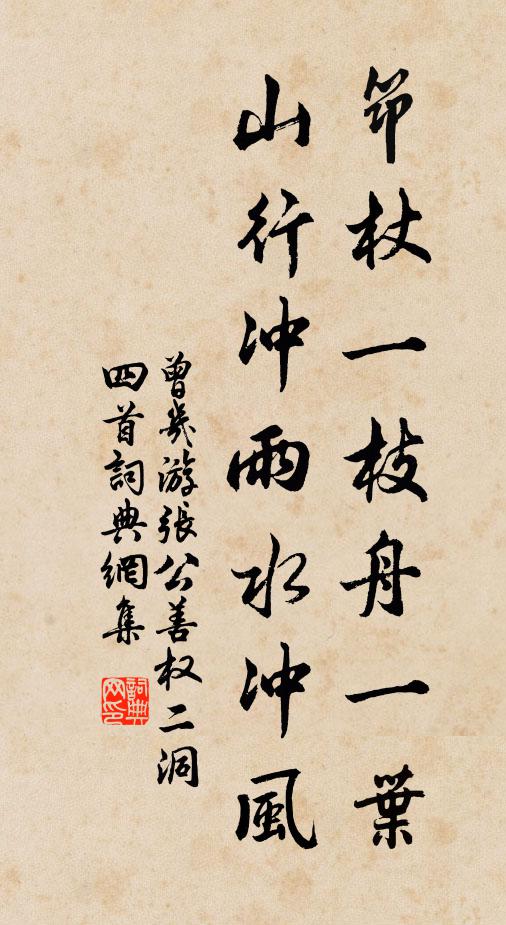 笻杖一枝舟一葉
山行冲雨水冲風
曾幾游張公善权二洞
四首詞典網集
詞典网印